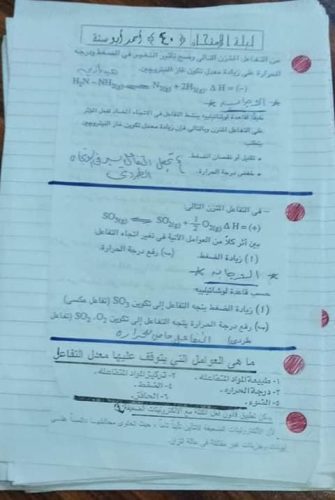 ليلة الامتحان (٤٠) أحمد أبو سنة
من التفاعل المتزن التالي وضح تأثير التغير في الضغط ودرجة
الحرارة على زيادة معدل تكوين غاز النيتروجين.
H₂N – NH₂(g) ⇌ N₂(g) + 2H₂(g) ΔH = (–)
طبقاً لقاعدة لوشاتيلييه ينشط التفاعل في الاتجاه المضاد لفعل المؤثر
على التفاعل المتزن وبالتالي فإن زيادة معدل تكوين غاز النيتروجين
يتطلب
* تقليل أو نقصان الضغط.
* خفض درجة الحرارة.
الطردي
– في التفاعل المتزن التالي:
SO₃(g) ⇌ SO₂(g) + ½ O₂(g) ΔH = (+)
بين أثر كلاً من العوامل الآتية في تغير اتجاه التفاعل
(١) زيادة الضغط. (ب) رفع درجة الحرارة.
حسب قاعدة لوشاتيلييه
(١) زيادة الضغط يتجه التفاعل إلى تكوين SO₃ (تفاعل عكسي)
(ب) رفع درجة الحرارة يتجه التفاعل إلى تكوين SO₂ ، O₂ (تفاعل
طردي) التفاعل ماص للحرارة
ما هي العوامل التي يتوقف عليها معدل التفاعل
١- طبيعة المواد المتفاعلة. ٢- تركيز المواد المتفاعلة.
٣- درجة الحرارة. ٤- الضغط.
٥- الضوء. ٦- الحافز.